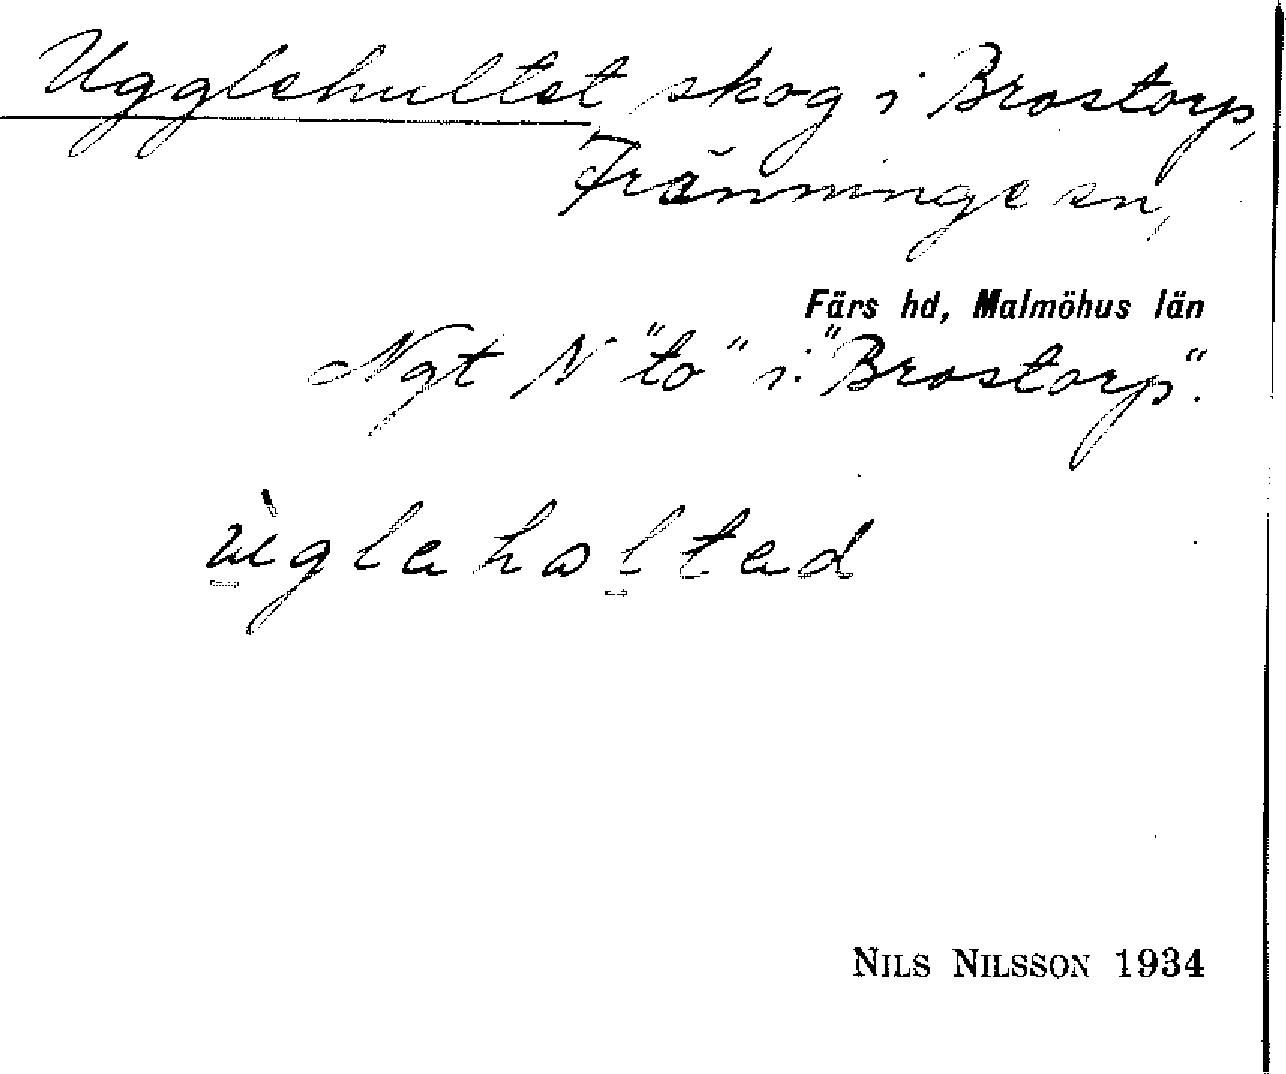 Ugglehultet skog i Brostorp,
Fränninge sn,
Färs hd, Malmöhus län
Ngt N "to" i "Brostorp".
ùglahåltad
NILS NILSSON 1934